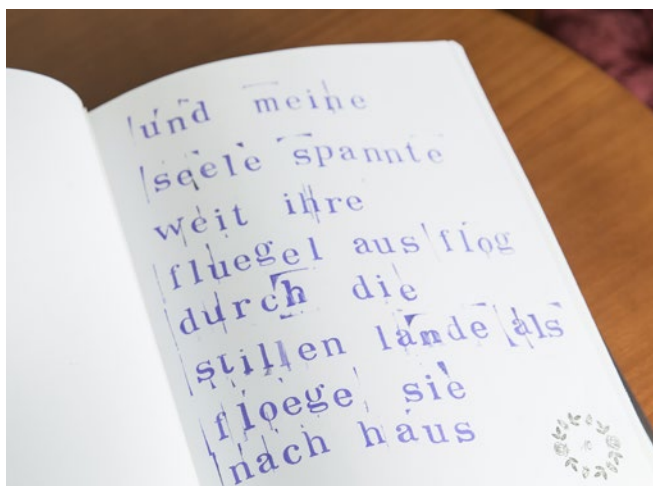 und meine
seele spannte
weit ihre
fluegel aus flog
durch die
stillen lande als
floege sie
nach haus